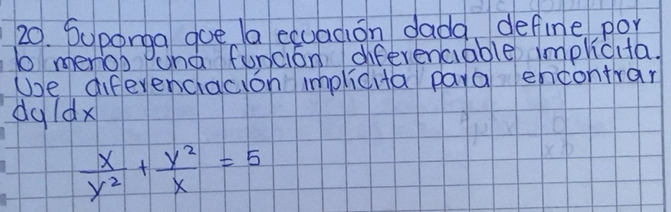 20. Suponga que la ecuación dada define por
lo menos una función diferenciable implícita.
Use diferenciación implícita para encontrar
dy/dx
x/y² + y²/x = 5